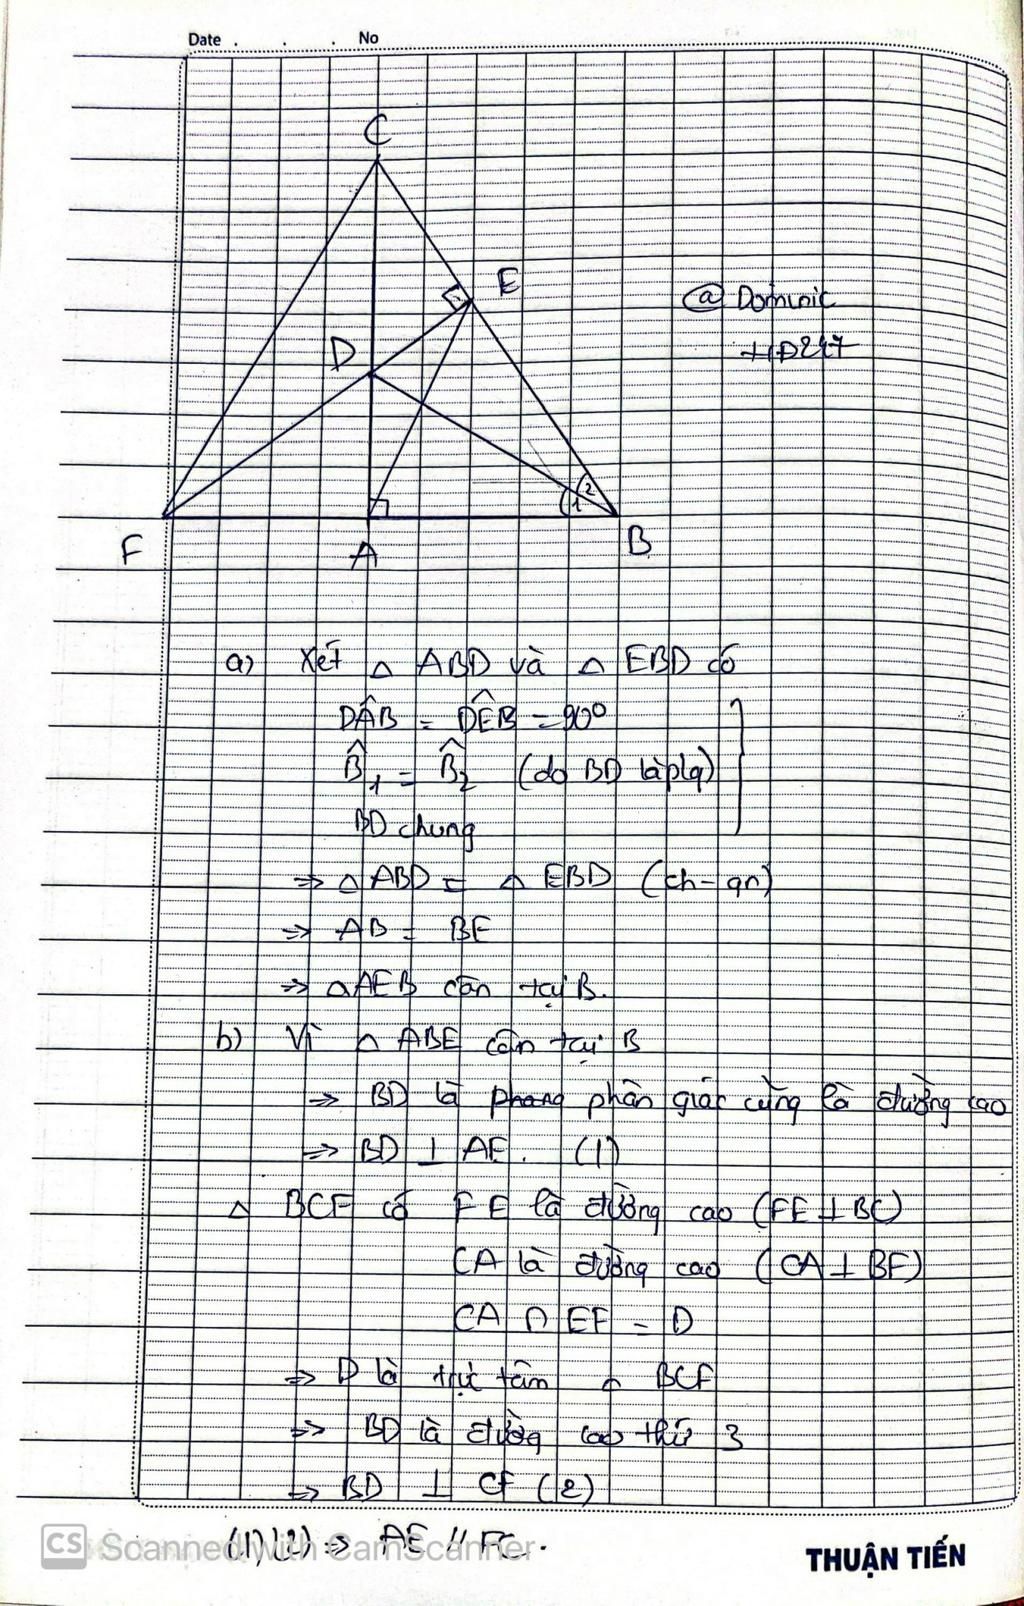 Date . . . No
C
E
@ Dominic
HD247
D
1 2
F
A
B
a) Xét △ ABD và △ EBD có
DÂB = DÊB = 90°
B̂₁ = B̂₂ (do BD là plg)
BD chung
=> △ ABD = △ EBD (ch - gn)
=> AB = BE
=> △AEB cân tại B.
b) Vì △ ABE cân tại B
=> BD là phân giác cũng là đường cao
=> BD ⊥ AE. (1)
△ BCF có FE là đường cao (FE ⊥ BC)
CA là đường cao (CA ⊥ BF)
CA ∩ EF = D
=> D là trực tâm △ BCF
=> BD là đường cao thứ 3
=> BD ⊥ CF (2)
(1)(2) => AE // FC.
CS Scanned with CamScanner
THUẬN TIẾN